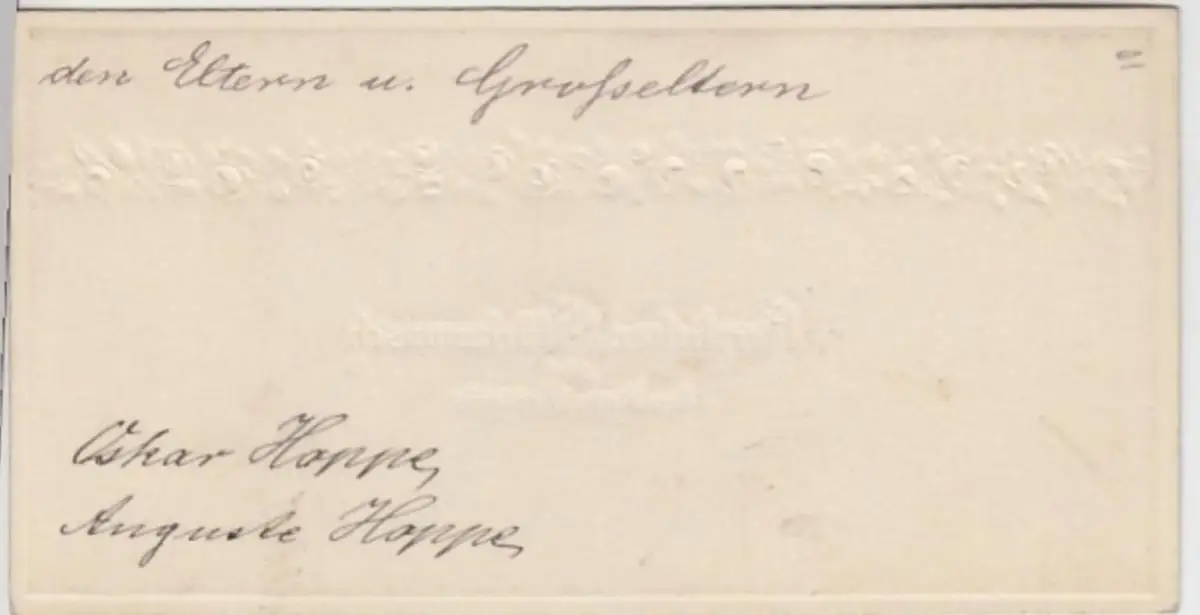 den Eltern u. Großseltern
Oskar Hoppe,
Auguste Hoppe,